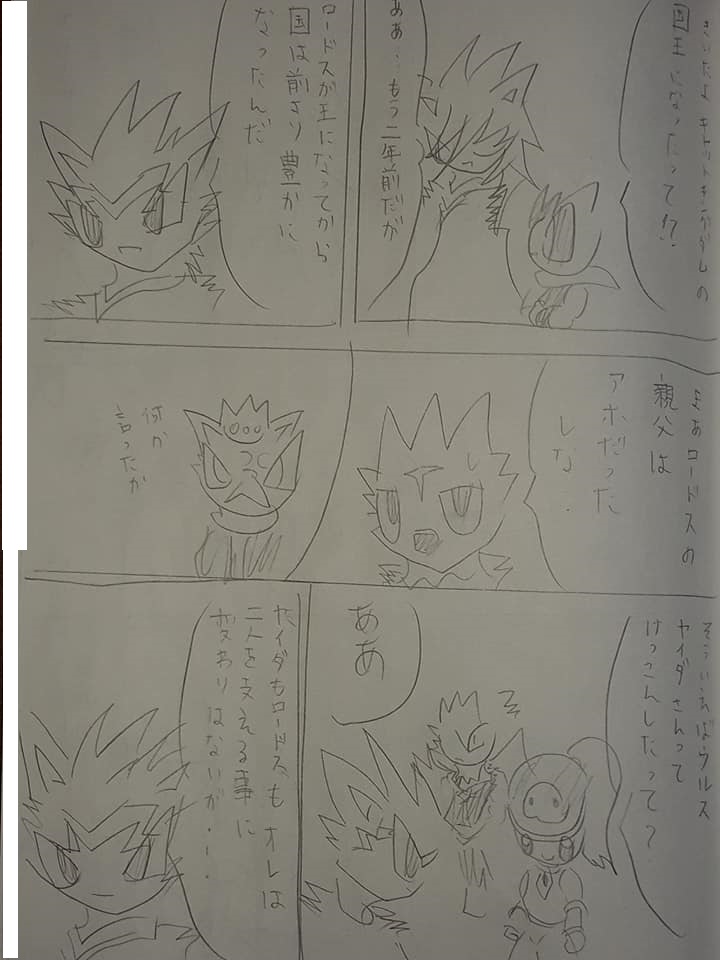 きいたよ キャットキングダムの
国王になったって!?
ああ… もう二年前だが
ロードスが王になってから
国は前より豊かに
なったんだ
まあロードスの
親父は
アホだった
しな…
何か
言ったか
そういえばウルス
ヤイダさんって
けっこんしたって?
ああ
ヤイダもロードスもオレは
二人を支える事に
変わりはないが・・